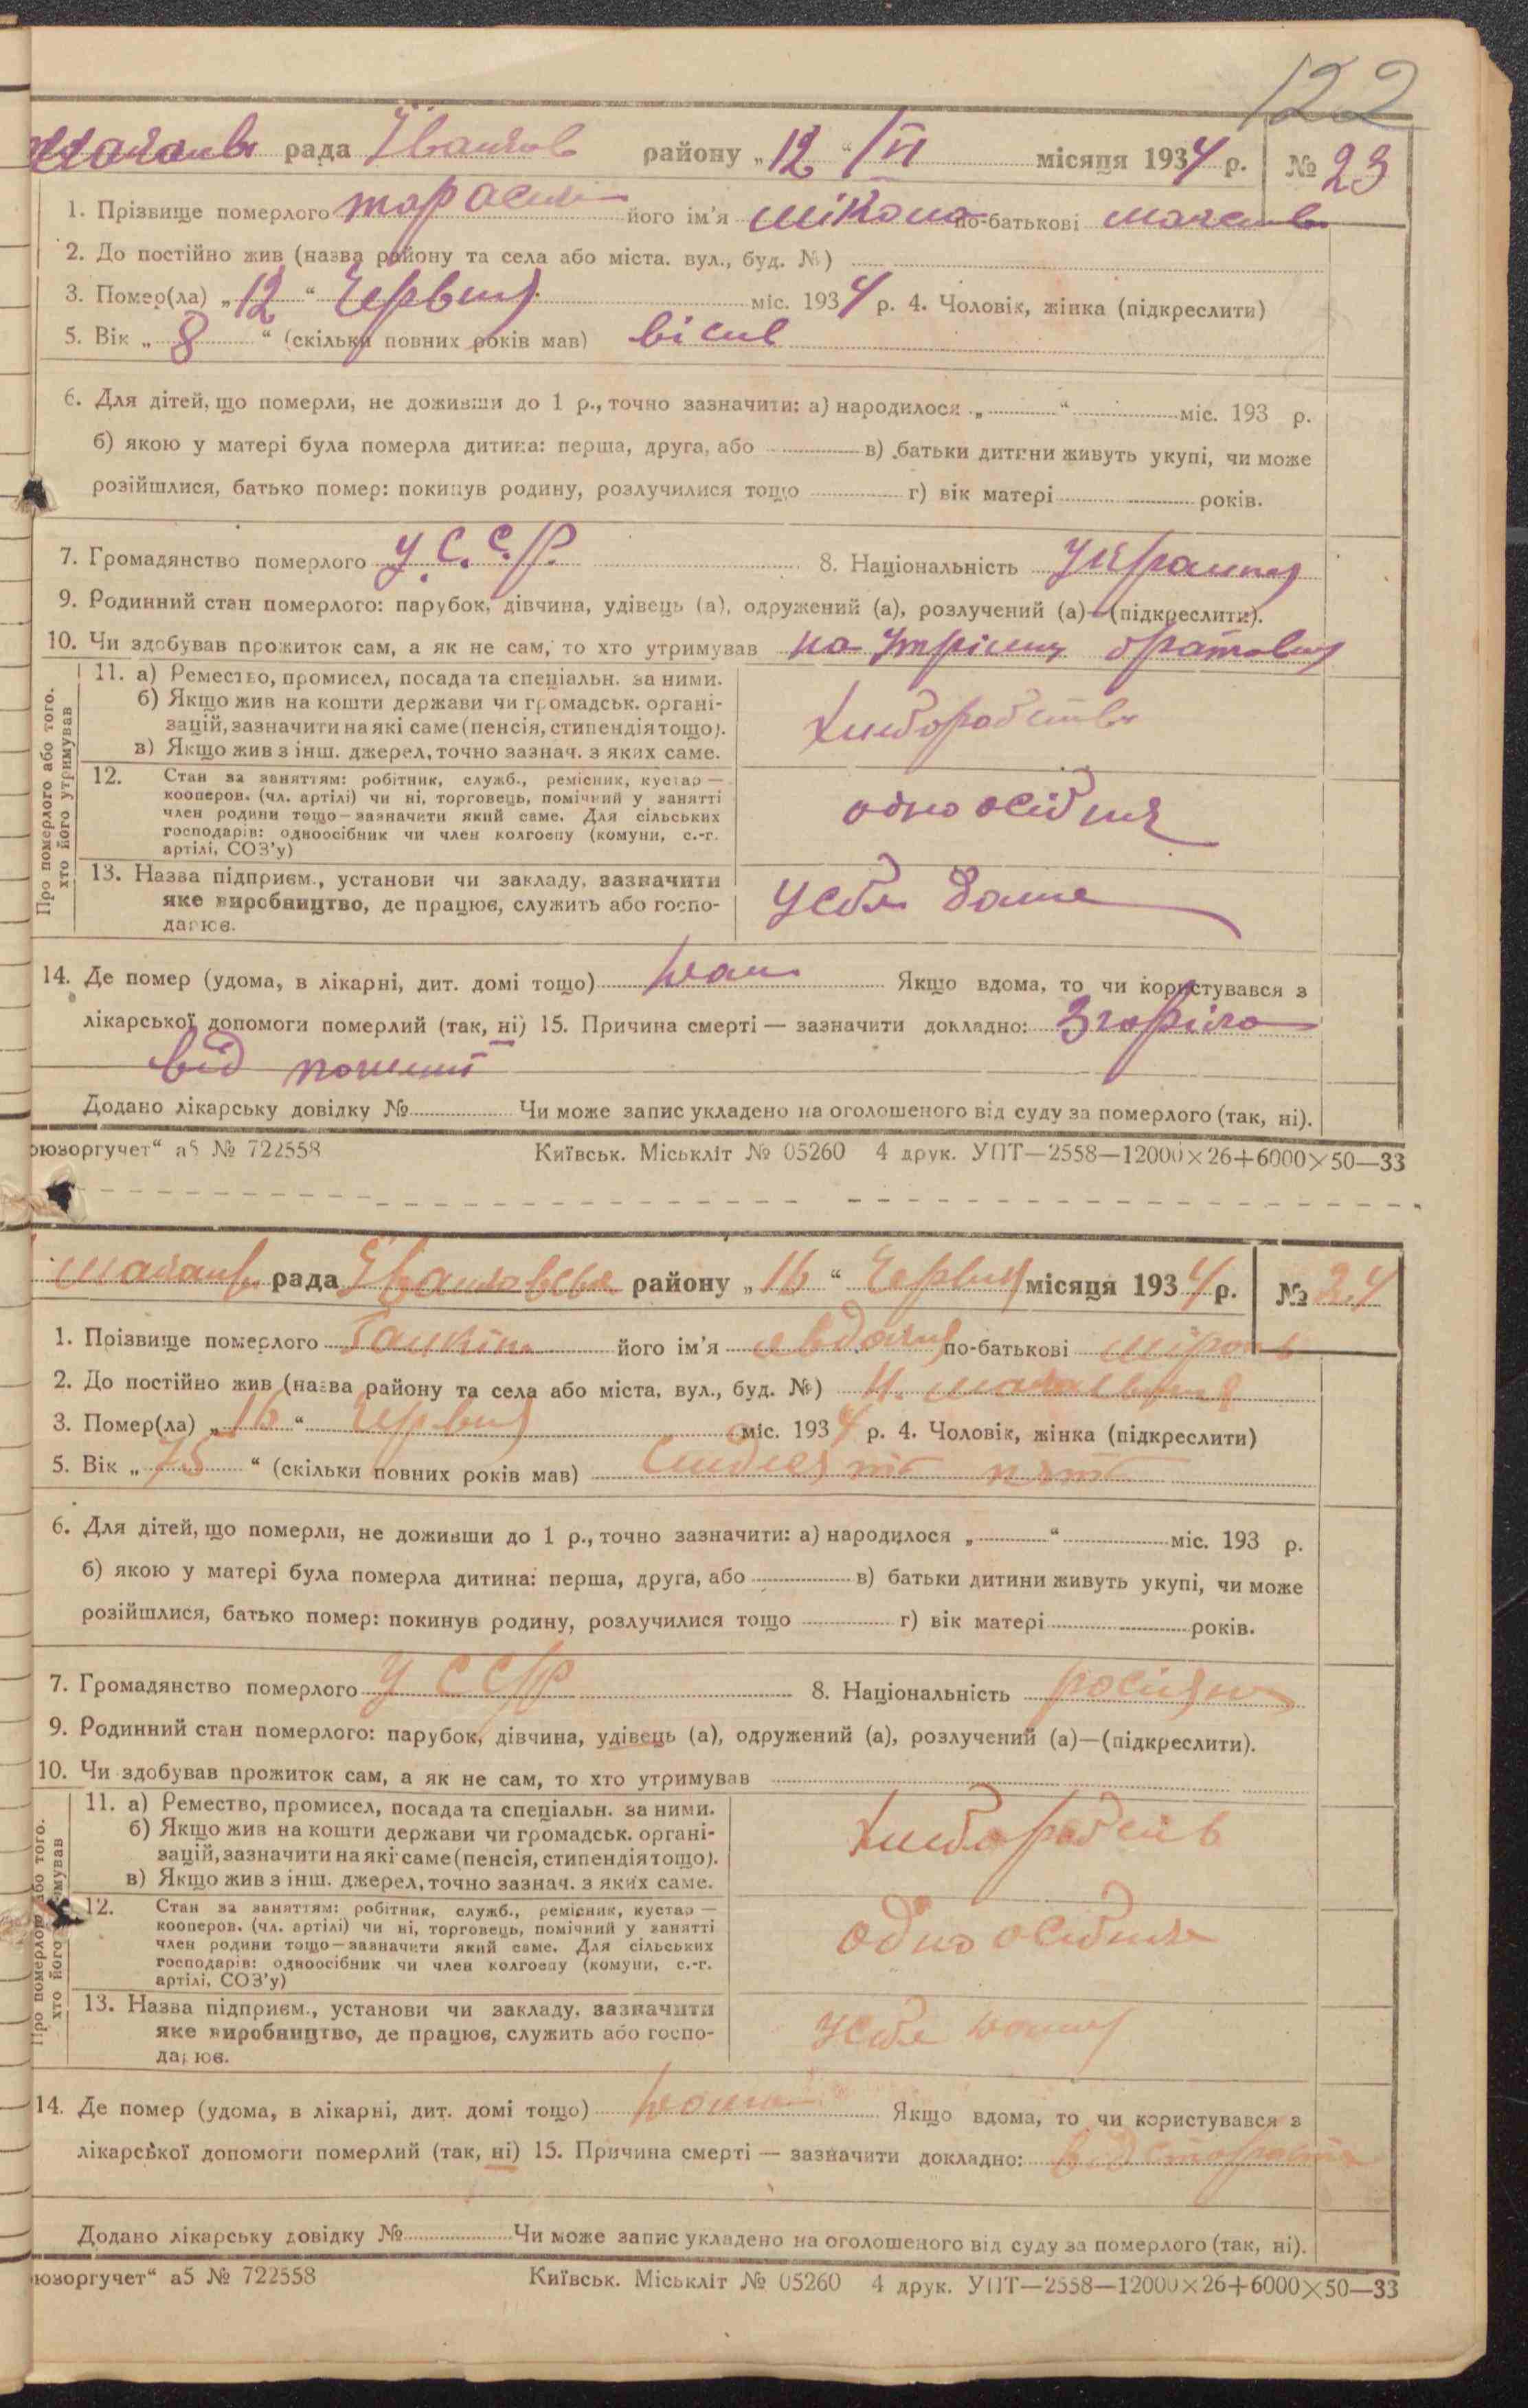 122
рада Іванков району „12“ /VI місяця 1934 р. № 23
1. Прізвище померлого Тарасен його ім'я Мікола по-батькові
2. До постійно жив (назва району та села або міста. вул., буд. №)
3. Помер(ла) „12“ Червня міс. 1934 р. 4. Чоловік, жінка (підкреслити)
5. Вік „8“ (скільки повних років мав) вісім
6. Для дітей, що померли, не доживши до 1 р., точно зазначити: а) народилося „ “ міс. 193 р.
б) якою у матері була померла дитина: перша, друга, або в) батьки дитини живуть укупі, чи може
розійшлися, батько помер: покинув родину, розлучилися тощо г) вік матері років.
7. Громадянство померлого У.С.С.Р. 8. Національність
9. Родинний стан померлого: парубок, дівчина, удівець (а), одружений (а), розлучений (а)—(підкреслити).
10. Чи здобував прожиток сам, а як не сам, то хто утримував на
Про померлого або того.
хто його утримував
11. а) Ремество, промисел, посада та спеціальн. за ними.
б) Якщо жив на кошти держави чи громадськ. органі-
зацій, зазначити на які саме (пенсія, стипендія тощо).
в) Якщо жив з інш. джерел, точно зазнач. з яких саме.
12. Стан за заняттям: робітник, служб., ремісник, кустар —
кооперов. (чл. артілі) чи ні, торговець, помічний у занятті
член родини тощо—зазначити який саме. Для сільських
господарів: одноосібник чи член колгоспу (комуни, с.-г.
артілі, СОЗ'у)
одноосібник
13. Назва підприєм., установи чи закладу, зазначити
яке виробництво, де працює, служить або госпо-
дарює.
у себе дома
14. Де помер (удома, в лікарні, дит. домі тощо) Якщо вдома, то чи користувався з
лікарської допомоги померлий (так, ні) 15. Причина смерті — зазначити докладно: Згоріло
від
Додано лікарську довідку № Чи може запис укладено на оголошеного від суду за померлого (так, ні).
юзоргучет“ а5 № 722558 Київськ. Міськліт № 05260 4 друк. УПТ—2558—12000×26+6000×50—33
рада району „16“ Червня місяця 1934 р. № 24
1. Прізвище померлого його ім'я Євдокия по-батькові Мірон
2. До постійно жив (назва району та села або міста, вул., буд. №)
3. Помер(ла) „16“ Червня міс. 1934 р. 4. Чоловік, жінка (підкреслити)
5. Вік „75“ (скільки повних років мав) пять
6. Для дітей, що померли, не доживши до 1 р., точно зазначити: а) народилося „ “ міс. 193 р.
б) якою у матері була померла дитина: перша, друга, або в) батьки дитини живуть укупі, чи може
розійшлися, батько помер: покинув родину, розлучилися тощо г) вік матері років.
7. Громадянство померлого У С С Р 8. Національність
9. Родинний стан померлого: парубок, дівчина, удівець (а), одружений (а), розлучений (а)—(підкреслити).
10. Чи здобував прожиток сам, а як не сам, то хто утримував
Про померлого або того.
хто його утримував
11. а) Ремество, промисел, посада та спеціальн. за ними.
б) Якщо жив на кошти держави чи громадськ. органі-
зацій, зазначити на які саме (пенсія, стипендія тощо).
в) Якщо жив з інш. джерел, точно зазнач. з яких саме.
12. Стан за заняттям: робітник, служб., ремісник, кустар —
кооперов. (чл. артілі) чи ні, торговець, помічний у занятті
член родини тощо—зазначити який саме. Для сільських
господарів: одноосібник чи член колгоспу (комуни, с.-г.
артілі, СОЗ'у)
одноосібник
13. Назва підприєм., установи чи закладу, зазначити
яке виробництво, де працює, служить або госпо-
дарює.
у себе
14. Де помер (удома, в лікарні, дит. домі тощо) Якщо вдома, то чи користувався з
лікарської допомоги померлий (так, ні) 15. Причина смерті — зазначити докладно: від
Додано лікарську довідку № Чи може запис укладено на оголошеного від суду за померлого (так, ні).
юзоргучет“ а5 № 722558 Київськ. Міськліт № 05260 4 друк. УПТ—2558—12000×26+6000×50—33